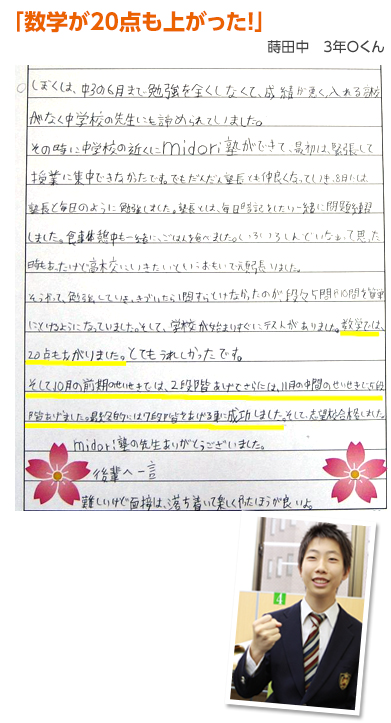 「数学が20点も上がった!」
蒔田中　3年Oくん
ぼくは、中3の6月まで勉強を全くしなくて、成績が悪く、入れる高校
がなく中学校の先生にも諦められていました。
その時に中学校の近くにmidori塾ができて、最初は、緊張して
授業に集中できなかったです。でもだんだん塾長とも仲良くなっていき、8月には、
塾長と毎日のように勉強しました。塾長とは、毎日暗記をしたり一緒に問題を練習
しました。食事休憩中も一緒に、ごはんを食べました。いろいろしんどいなぁって思った
時もあったけど高校にいきたいという
そうやって、勉強していき、きづいたら1問すらとけなかったのが段々5問10問を
にとけるようになっていました。そして、学校が始まりすぐにテストがありました。数学では、
20点も上がりました。とてもうれしかったです。
そして10月の前期のせいせきでは、2段階あげてさらには、11月の中間のせいせきに5段
階あげました。最終的には7段階をあげる事に成功しました。そして、志望校合格しました。
midori塾の先生ありがとうございました。
後輩へ一言
難しいけど面接は、落ち着いて楽しくやったほうが良いよ。